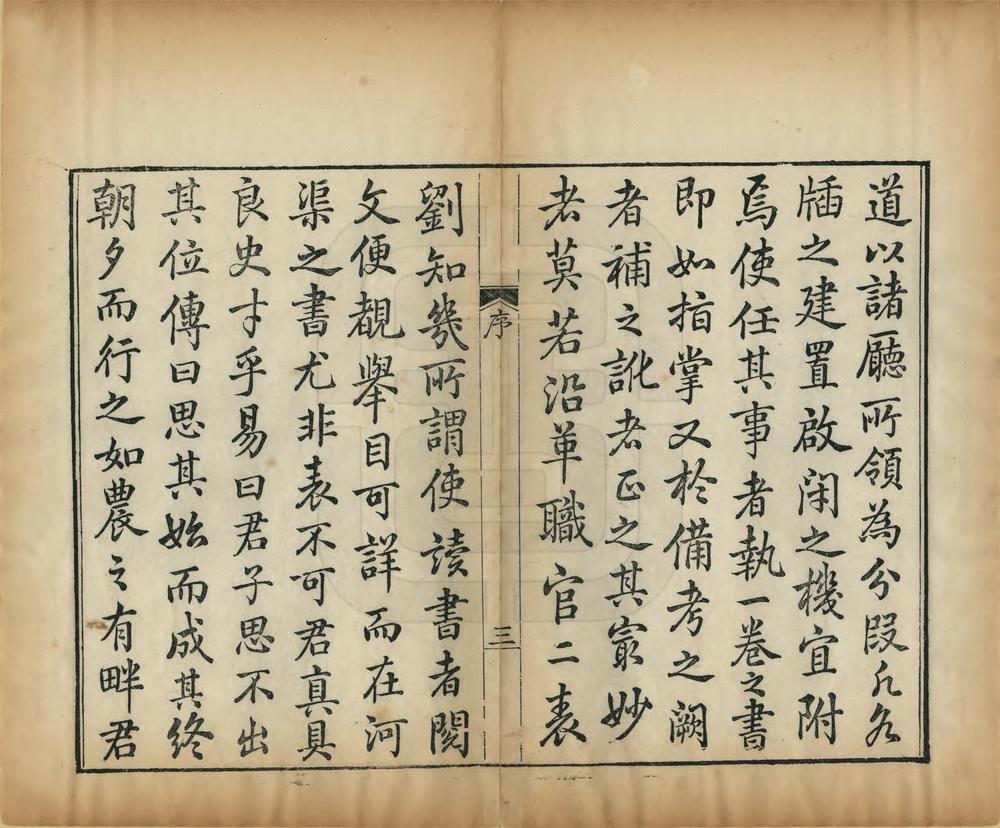 道以諸廳所領為分段凡各
牐之建置啟閉之機宜附
焉使任其事者執一卷之書
即如指掌又於備考之闕
者補之訛者正之其冣妙
者莫若沿革職官二表
序
三
劉知幾所謂使讀書者閱
文便覩舉目可詳而在河
渠之書尤非表不可君真具
良史才乎易曰君子思不出
其位傳曰思其始而成其終
朝夕而行之如農之有畔君